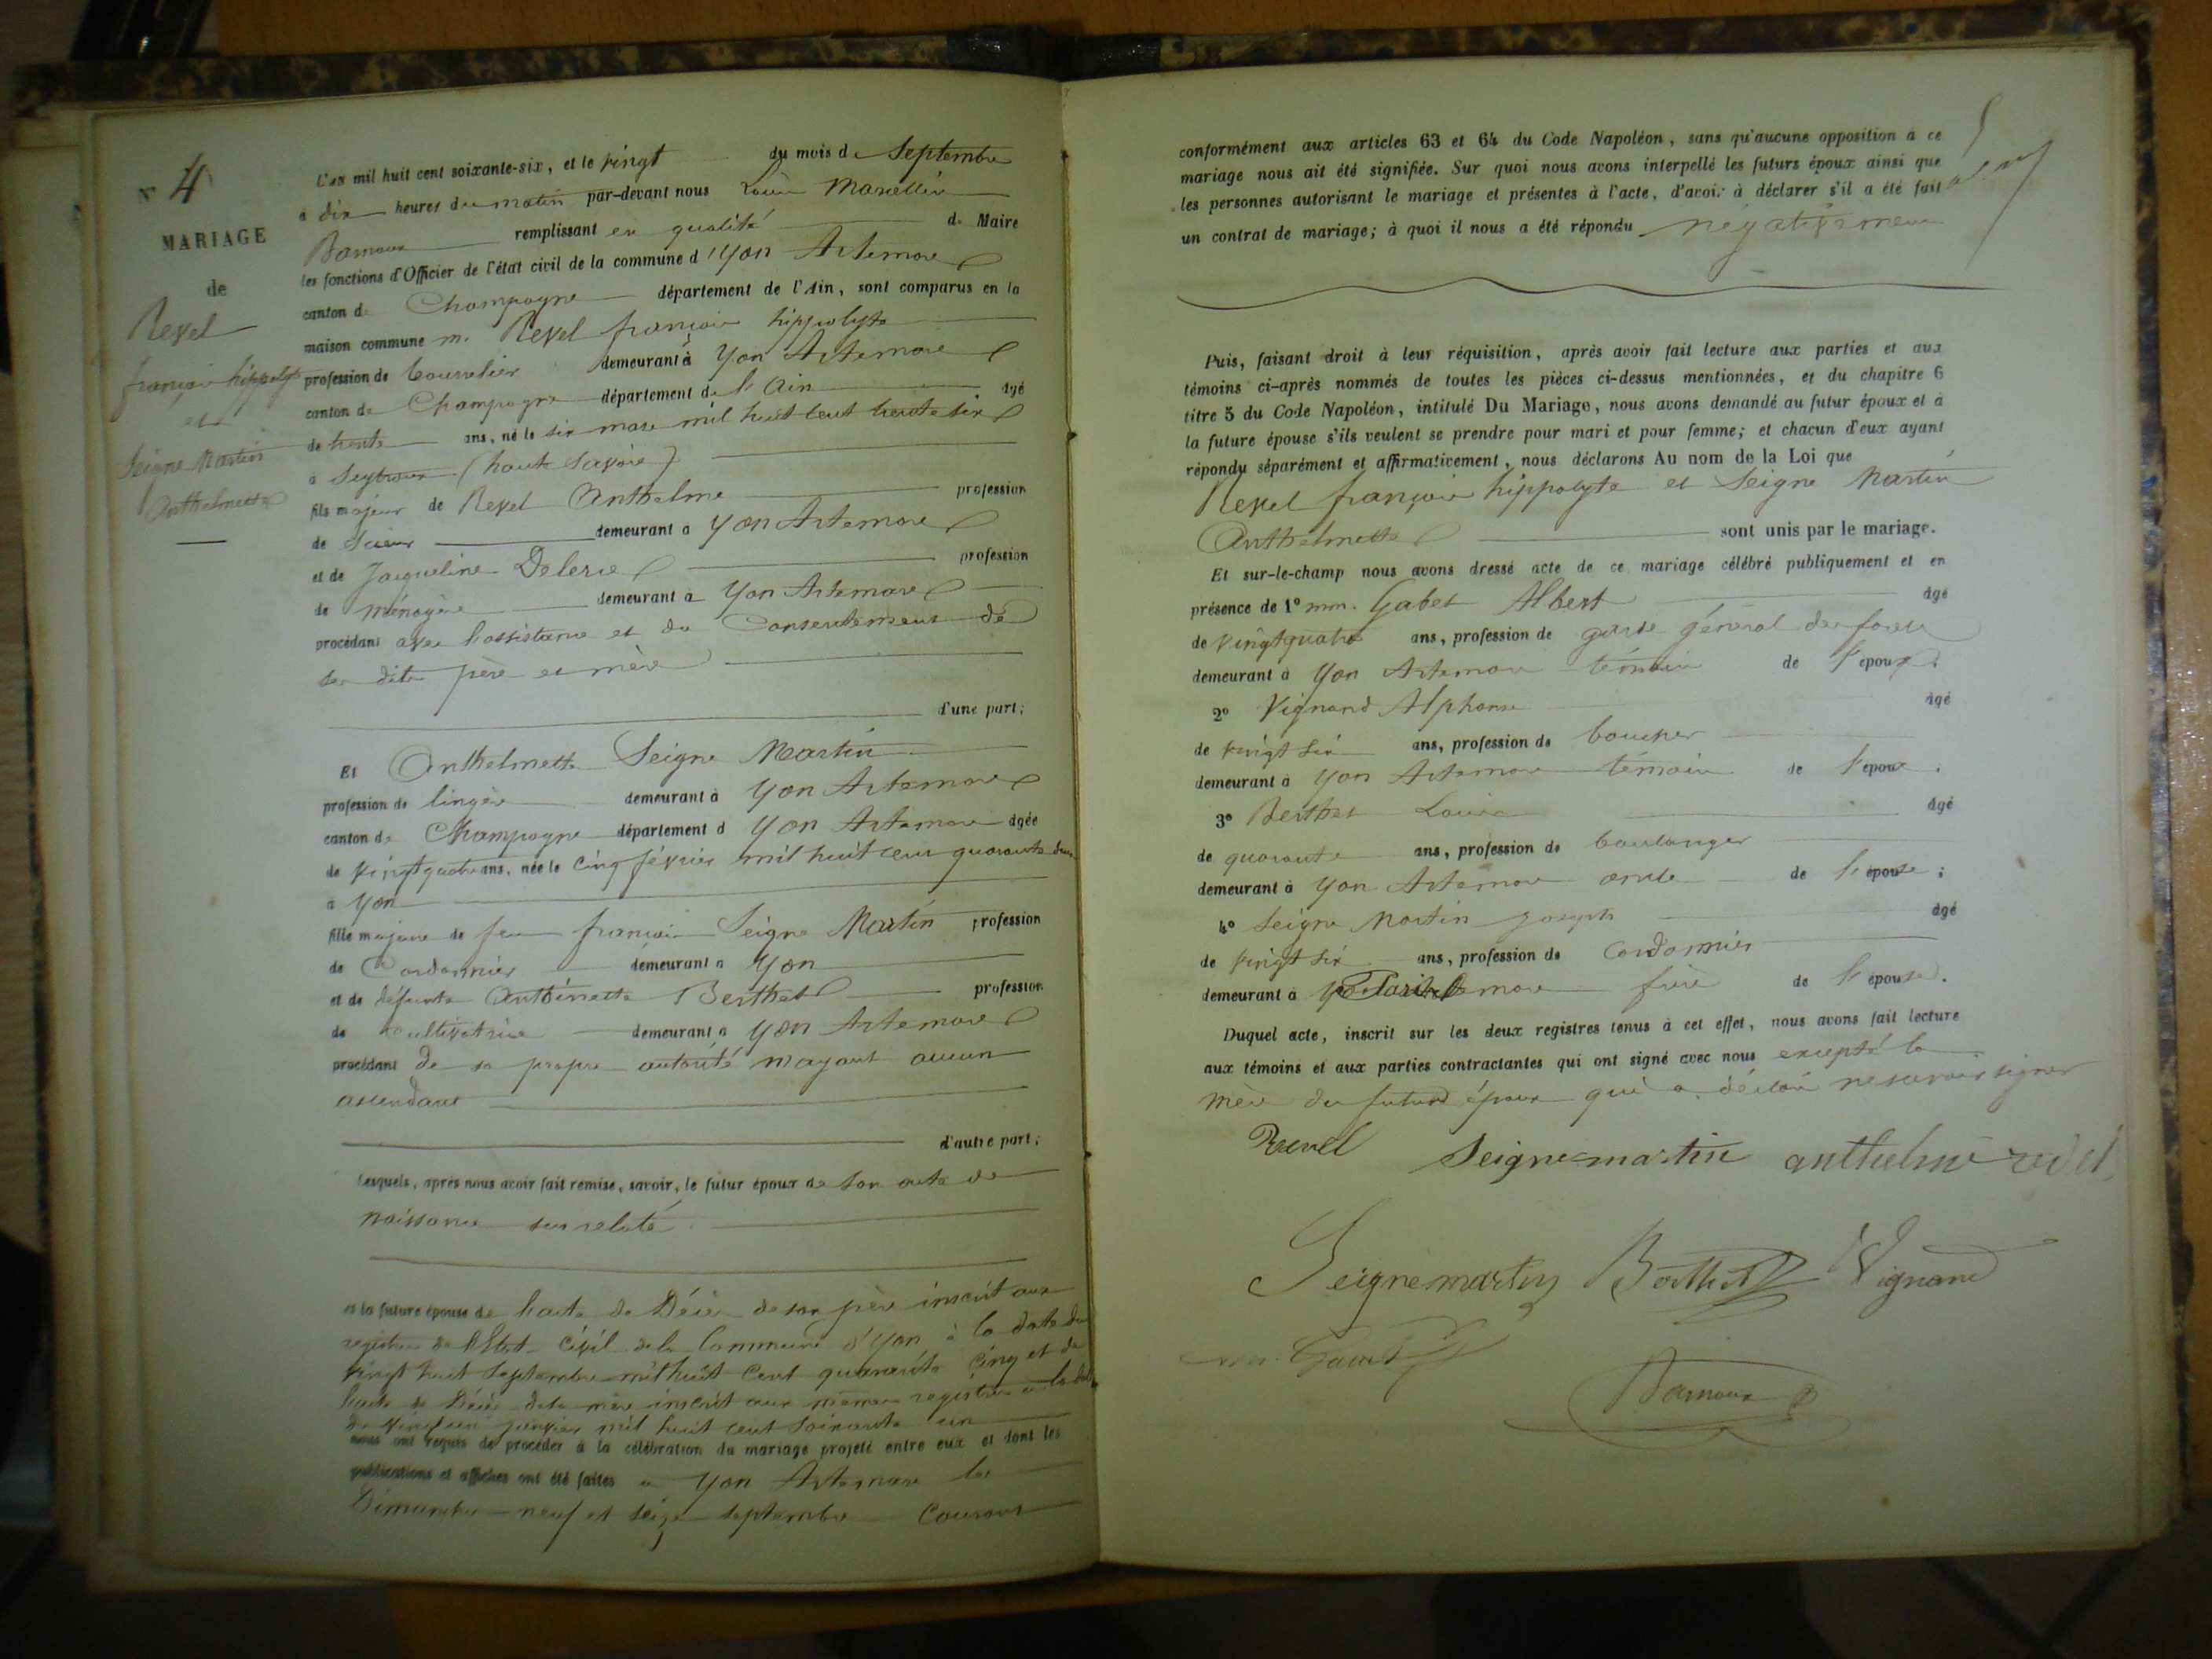 N° 4
MARIAGE
de
Revel
françois hippolyte
et
Seigne Martin
Anthelmette
L'an mil huit cent soixante-six, et le vingt du mois de Septembre
à dix heures du matin par-devant nous Louis Marcellin
Bamoux remplissant en qualité de Maire
les fonctions d'Officier de l'état civil de la commune d'Yon Artemare
canton de Champagne département de l'Ain, sont comparus en la
maison commune m. Revel françois hippolyte
profession de bourrelier demeurant à Yon Artemare
canton de Champagne département de l'Ain âgé
de trente ans, né le six mars mil huit cent trente six
à (haute Savoie)
fils majeur de Revel Anthelme profession
de Scieur demeurant a Yon Artemare
et de Jacqueline profession
de ménagère demeurant à Yon Artemare
procédant avec l'assistance et du Consentement de
ses dits père et mère
d'une part;
Et Anthelmette Seigne Martin
profession de lingère demeurant à Yon Artemare
canton de Champagne département d Yon Artemare âgée
de vingt quatre ans, née le cinq février mil huit cent quarante deux
à Yon
fille majeure de feu françois Seigne Martin profession
de Cordonnier demeurant a Yon
et de défunte Antoinette Berthet profession
de cultivatrice demeurant a Yon Artemare
procédant de sa propre autorité n'ayant aucun
ascendant
d'autre part;
Lesquels, après nous avoir fait remise, savoir, le futur époux de son acte de
naissance sus relaté
et la future épouse de l'acte de Décès de son père inscrit aux
registres de l'Etat civil de la Commune d'Yon à la date du
vingt huit Septembre mil huit cent quarante cinq et de
l'acte de Décès de la mère inscrit aux mêmes registres à la date
du vingt un janvier mil huit cent soixante un
nous ont requis de procéder à la célébration du mariage projeté entre eux et dont les
publications et affiches ont été faites a Yon Artemare les
Dimanches neuf et seize septembre Courant
conformément aux articles 63 et 64 du Code Napoléon, sans qu'aucune opposition à ce
mariage nous ait été signifiée. Sur quoi nous avons interpellé les futurs époux ainsi que
les personnes autorisant le mariage et présentes à l'acte, d'avoir à déclarer s'il a été fait
un contrat de mariage; à quoi il nous a été répondu négativement
Puis, faisant droit à leur réquisition, après avoir fait lecture aux parties et aux
témoins ci-après nommés de toutes les pièces ci-dessus mentionnées, et du chapitre 6
titre 5 du Code Napoléon, intitulé Du Mariage, nous avons demandé au futur époux et à
la future épouse s'ils veulent se prendre pour mari et pour femme; et chacun d'eux ayant
répondu séparément et affirmativement, nous déclarons Au nom de la Loi que
Revel françois hippolyte et Seigne Martin
Anthelmette sont unis par le mariage.
Et sur-le-champ nous avons dressé acte de ce mariage célébré publiquement et en
présence de 1° mm. Gabet Albert âgé
de vingt quatre ans, profession de garde général des forêts
demeurant à Yon Artemare témoin de l'époux;
2° Vignand Alphonse âgé
de vingt six ans, profession de boucher
demeurant à Yon Artemare témoin de l'époux;
3° Berthet Louis âgé
de quarante ans, profession de boulanger
demeurant à Yon Artemare oncle de l'épouse;
4° Seigne Martin Joseph âgé
de vingt six ans, profession de Cordonnier
demeurant à frère de l'épouse.
Duquel acte, inscrit sur les deux registres tenus à cet effet, nous avons fait lecture
aux témoins et aux parties contractantes qui ont signé avec nous excepté la
mère du futur époux qui a déclaré ne savoir signer
Revel Seigne-martin anthelme revel
Seignemartin Berthet Vignand
Bamoux